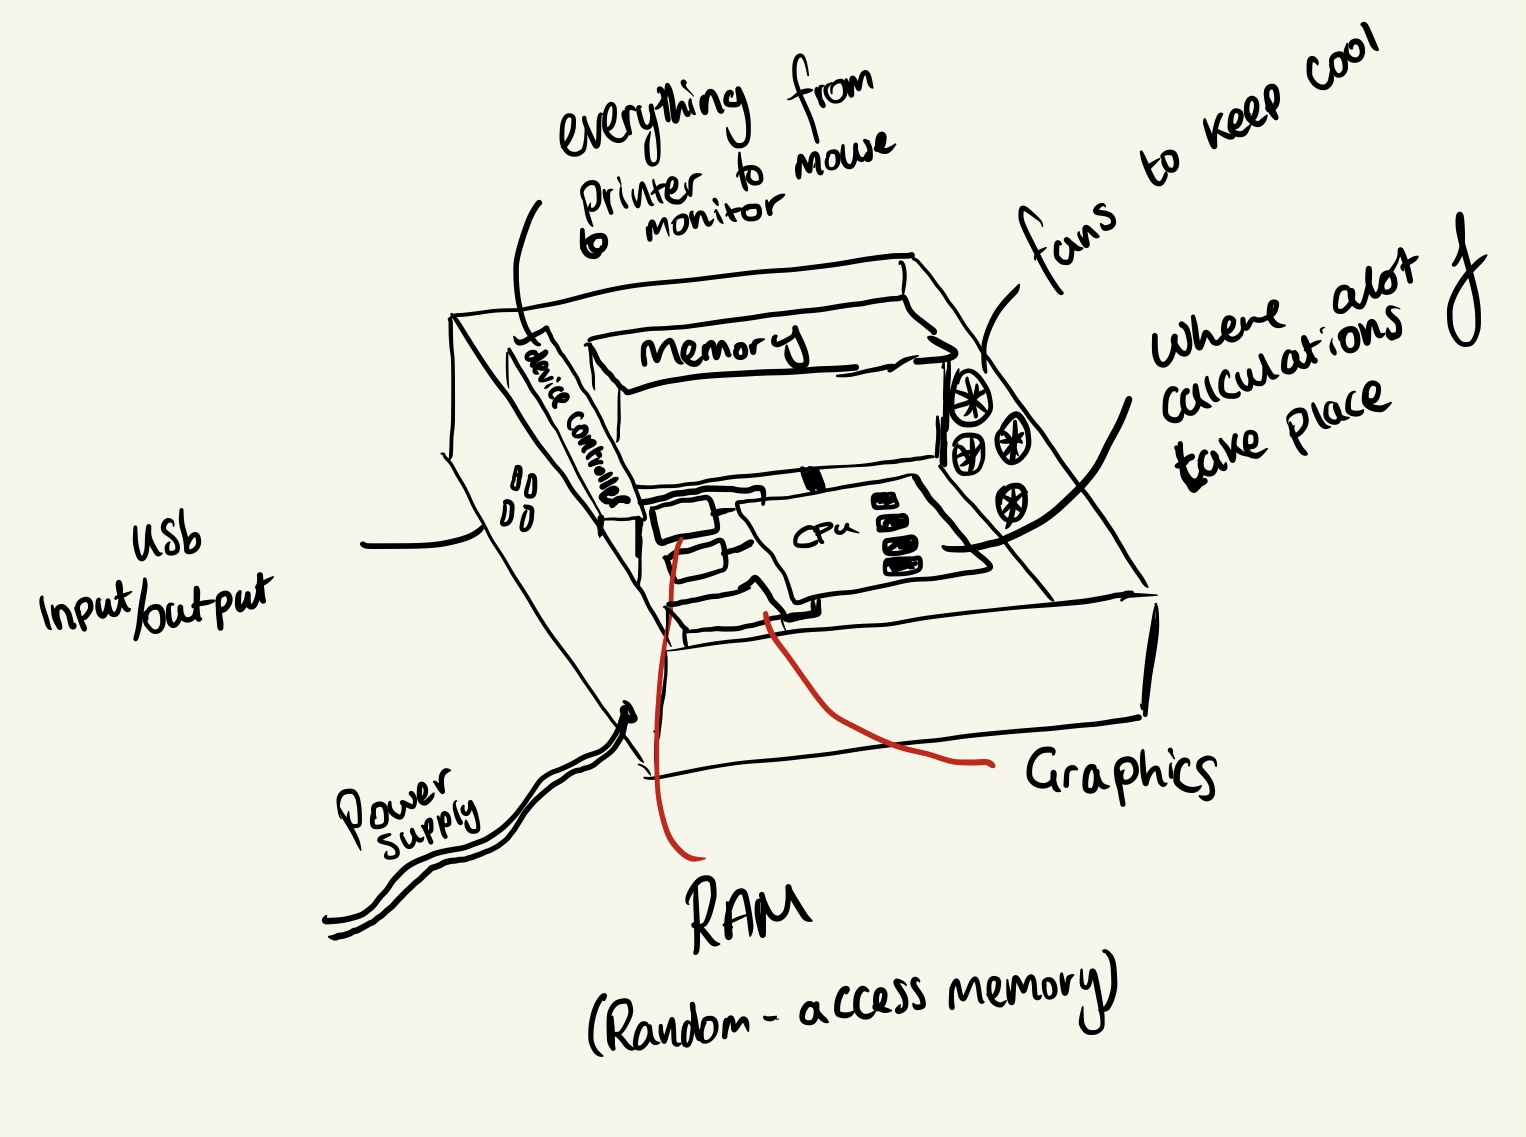 everything from
printer to mouse
to monitor
fans to keep cool
where alot of
calculations
take place
Memory
device controller
CPU
USb
Input/output
Power
supply
Graphics
RAM
(Random-access memory)